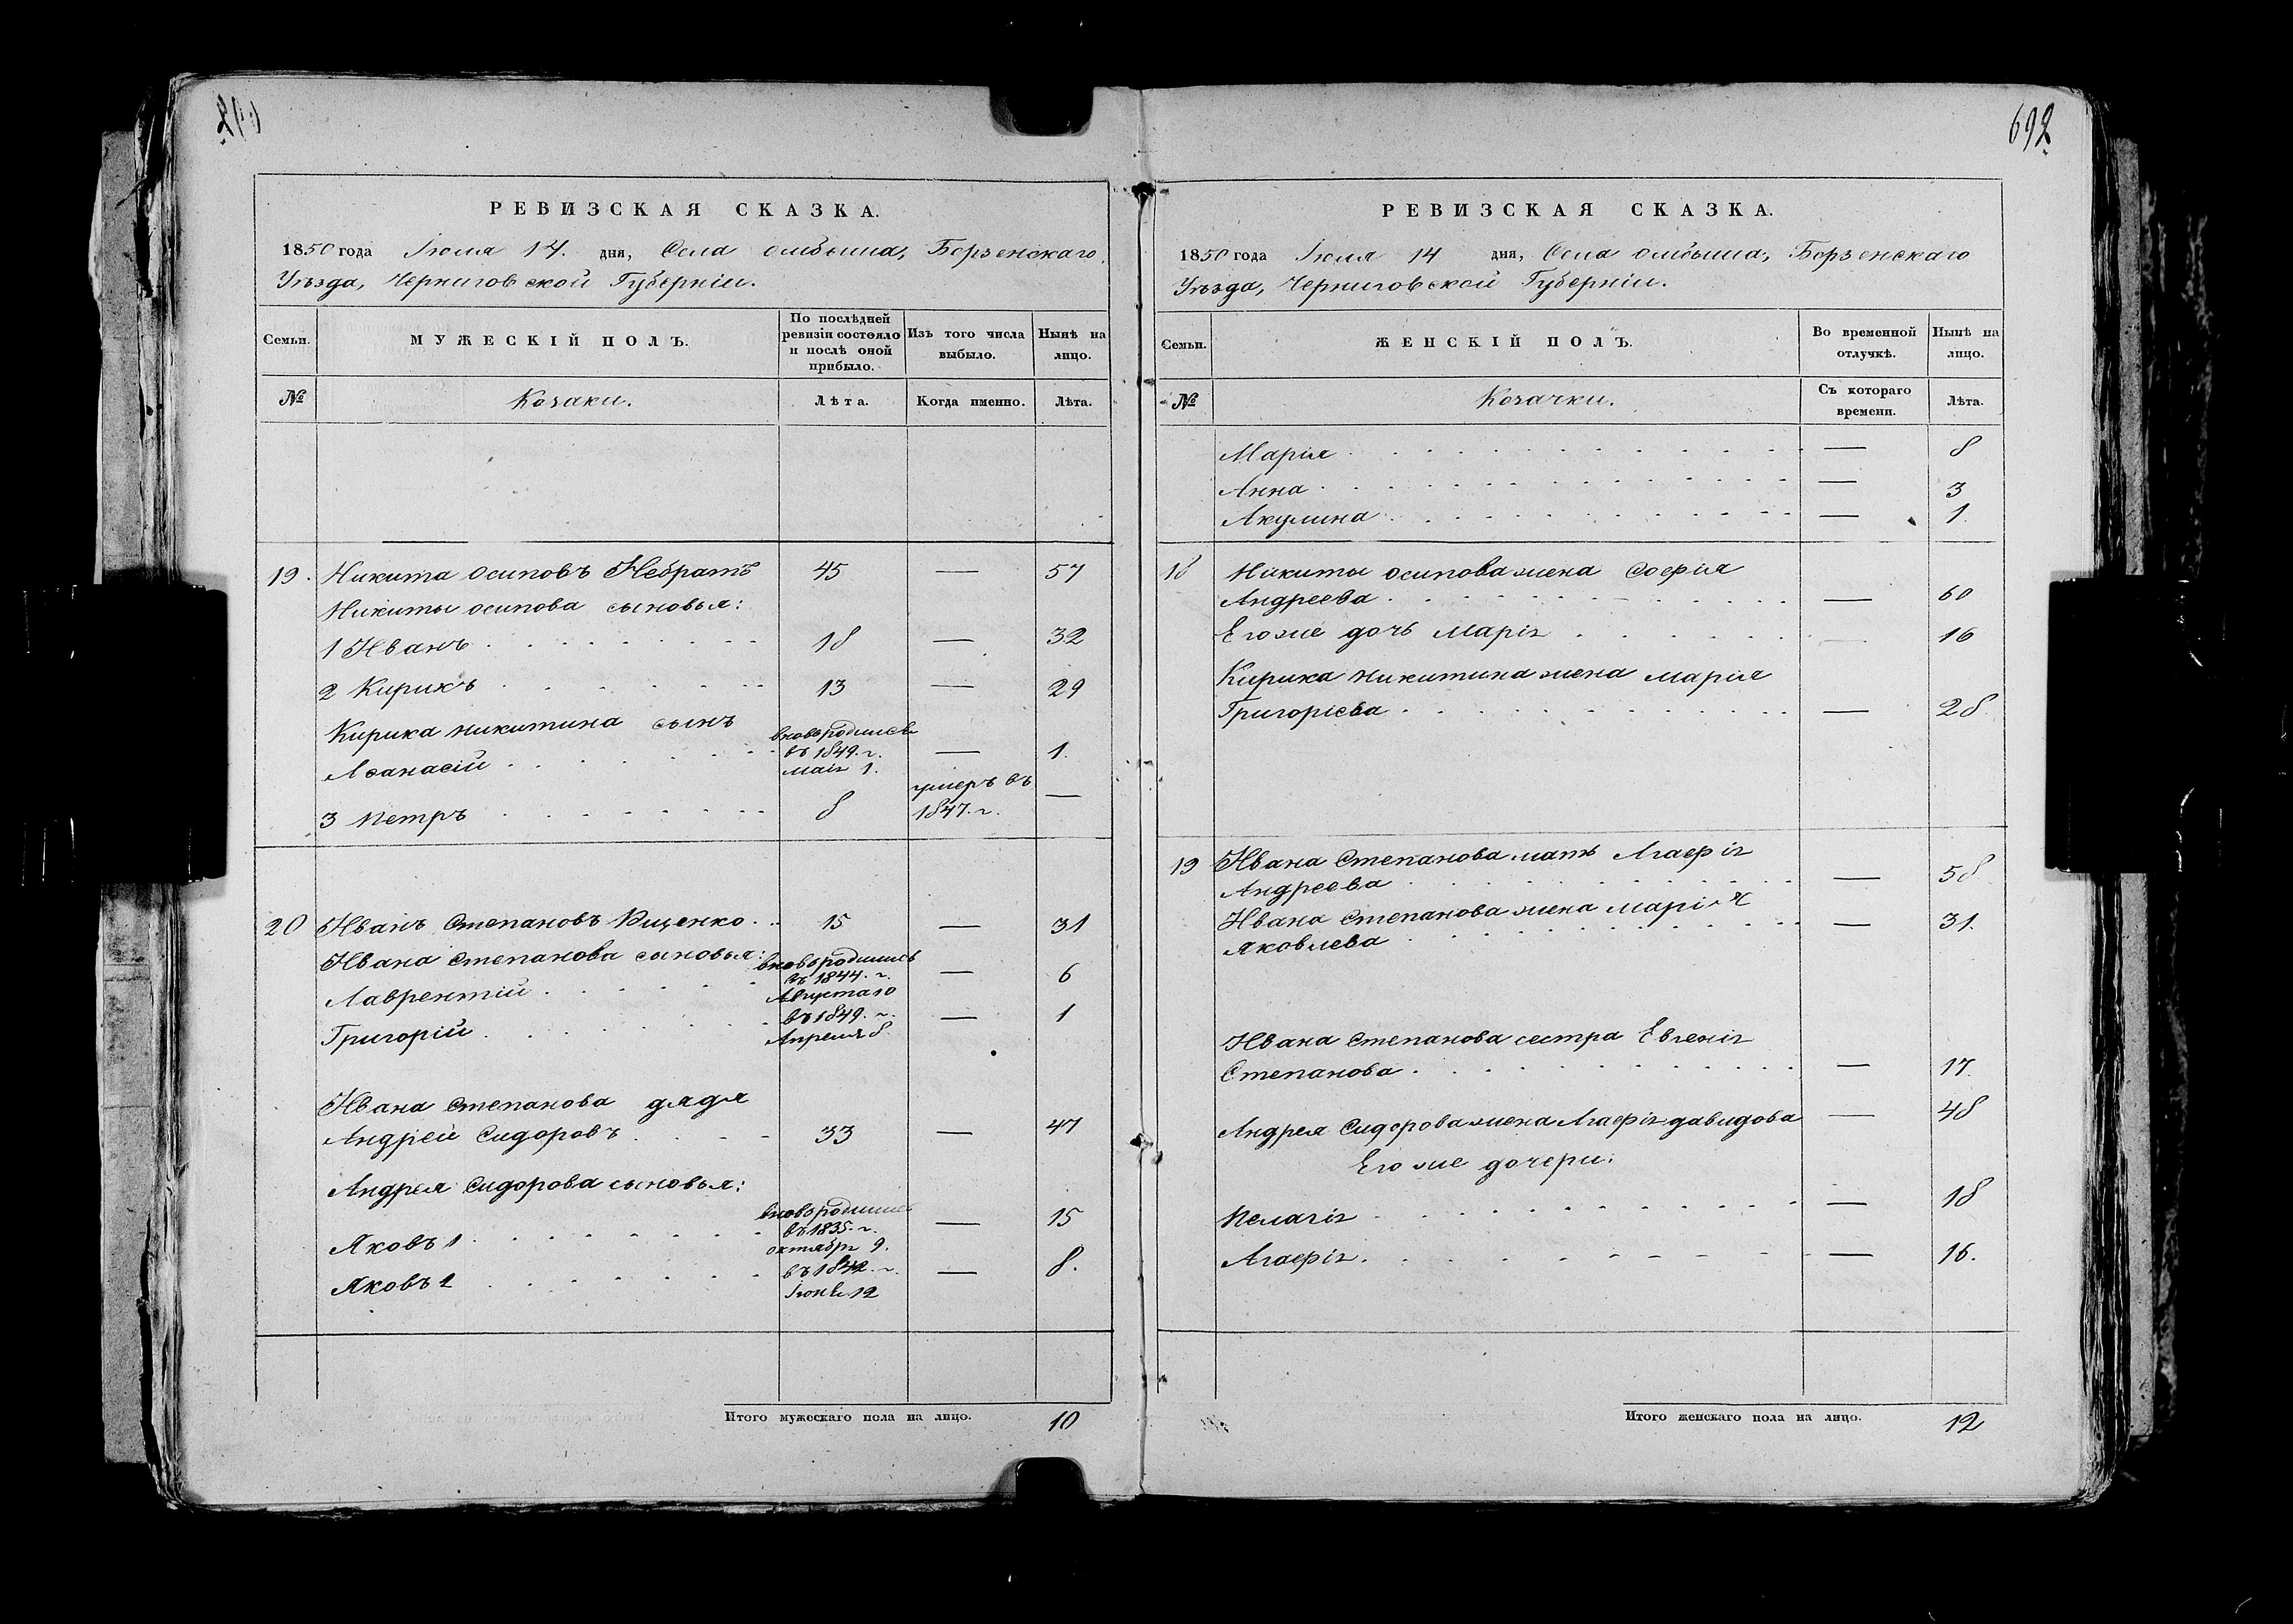 692
РЕВИЗСКАЯ СКАЗКА.
1850 года Іюля 14. дня, Села Омбыша, Борзенскаго
Уѣзда, Черниговской Губерніи.
Семьи.
МУЖЕСКІЙ ПОЛЪ.
По послѣдней
ревизіи состояло
и послѣ оной
прибыло.
Изъ того числа
выбыло.
Нынѣ на
лицо.
№
Козаки.
Лѣта.
Когда именно.
Лѣта.
19. Никита Осиповъ Небратъ 45 — 57
Никиты Осипова сыновья:
1 Иванъ 18 — 32
2 Кирикъ 13 — 29
Кирика Никитина сынъ вновьродился
въ 1849. г. — 1.
Аѳанасій маія 1.
умеръ въ
3 Петръ 8 1847. г. —
20 Иванъ Степановъ Ищенко 15 — 31
Ивана Степанова сыновья: вновьродились
въ 1844. г. — 6
Лаврентій Августа 10
въ 1849. г. — 1
Григорій Апреля 8.
Ивана Степанова дядя
Андрей Сидоровъ 33 — 47
Андрея Сидорова сыновья:
вновьродились
въ 1835. г. — 15
Яковъ 1 октября 9.
въ 1842. г. — 8.
Яковъ 2 Іюня 12
Итого мужескаго пола на лицо. 10
РЕВИЗСКАЯ СКАЗКА.
1850 года Іюля 14 дня, Села Омбыша, Борзенскаго
Уѣзда, Черниговской Губерніи.
Семьи.
ЖЕНСКІЙ ПОЛЪ.
Во временной
отлучкѣ.
Нынѣ на
лицо.
№
Козачки.
Съ котораго
времени.
Лѣта.
Марія — 8
Анна — 3
Акулина — 1.
18 Никиты Осипова жена Софія
Андреева — 60
Его же дочь Марія — 16
Кирика Никитина жена Марія
Григоріева — 28
19 Ивана Степанова мать Агафія
Андреева — 58
Ивана Степанова жена Марія
Яковлева — 31.
Ивана Степанова сестра Евгенія
Степанова — 17.
Андрея Сидорова жена Агафія Давидова — 48
Его же дочери:
Пелагія — 18
Агафія — 16.
Итого женскаго пола на лицо. 12